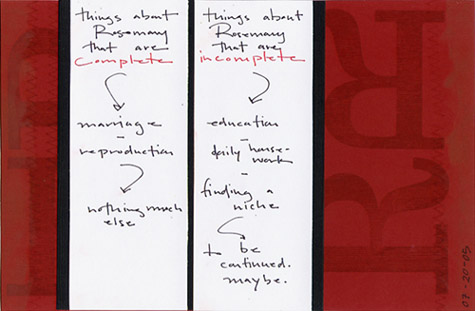 things about
Rosemary
that are
complete
marriage
–
reproduction
nothing much
else
things about
Rosemary
that are
incomplete
education
–
daily house-
work
–
finding a
niche
to be
continued.
maybe.
R
R
07-20-05